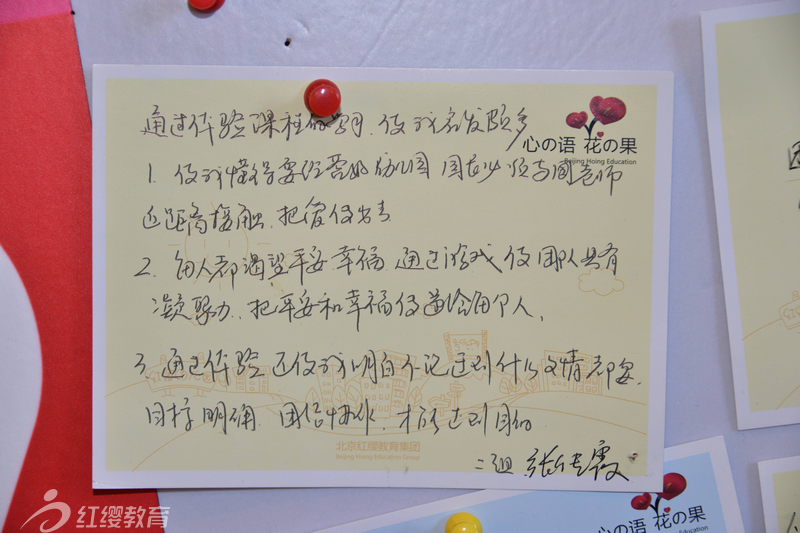 通过体验课程的学习,使我启发颇多
心の语 花の果
Beijing Hoing Education
1. 使我懂得要经营好幼儿园 园长必须与园老师
近距离接触,把爱传出去
2. 每人都渴望平安幸福 通过游戏使团队具有
凝聚力,把平安和幸福传递给每个人,
3. 通过体验还使我明白不论遇到什么事情都要
目标明确 团结协作,才能达到目的
北京红缨教育集团
Beijing Hoing Education Group
二组 张
霞
红缨教育
心の语 花の果